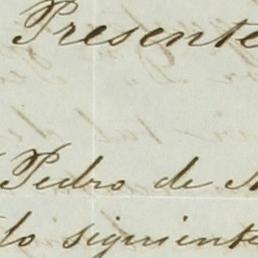 Presente
Pedro de
lo siguiente